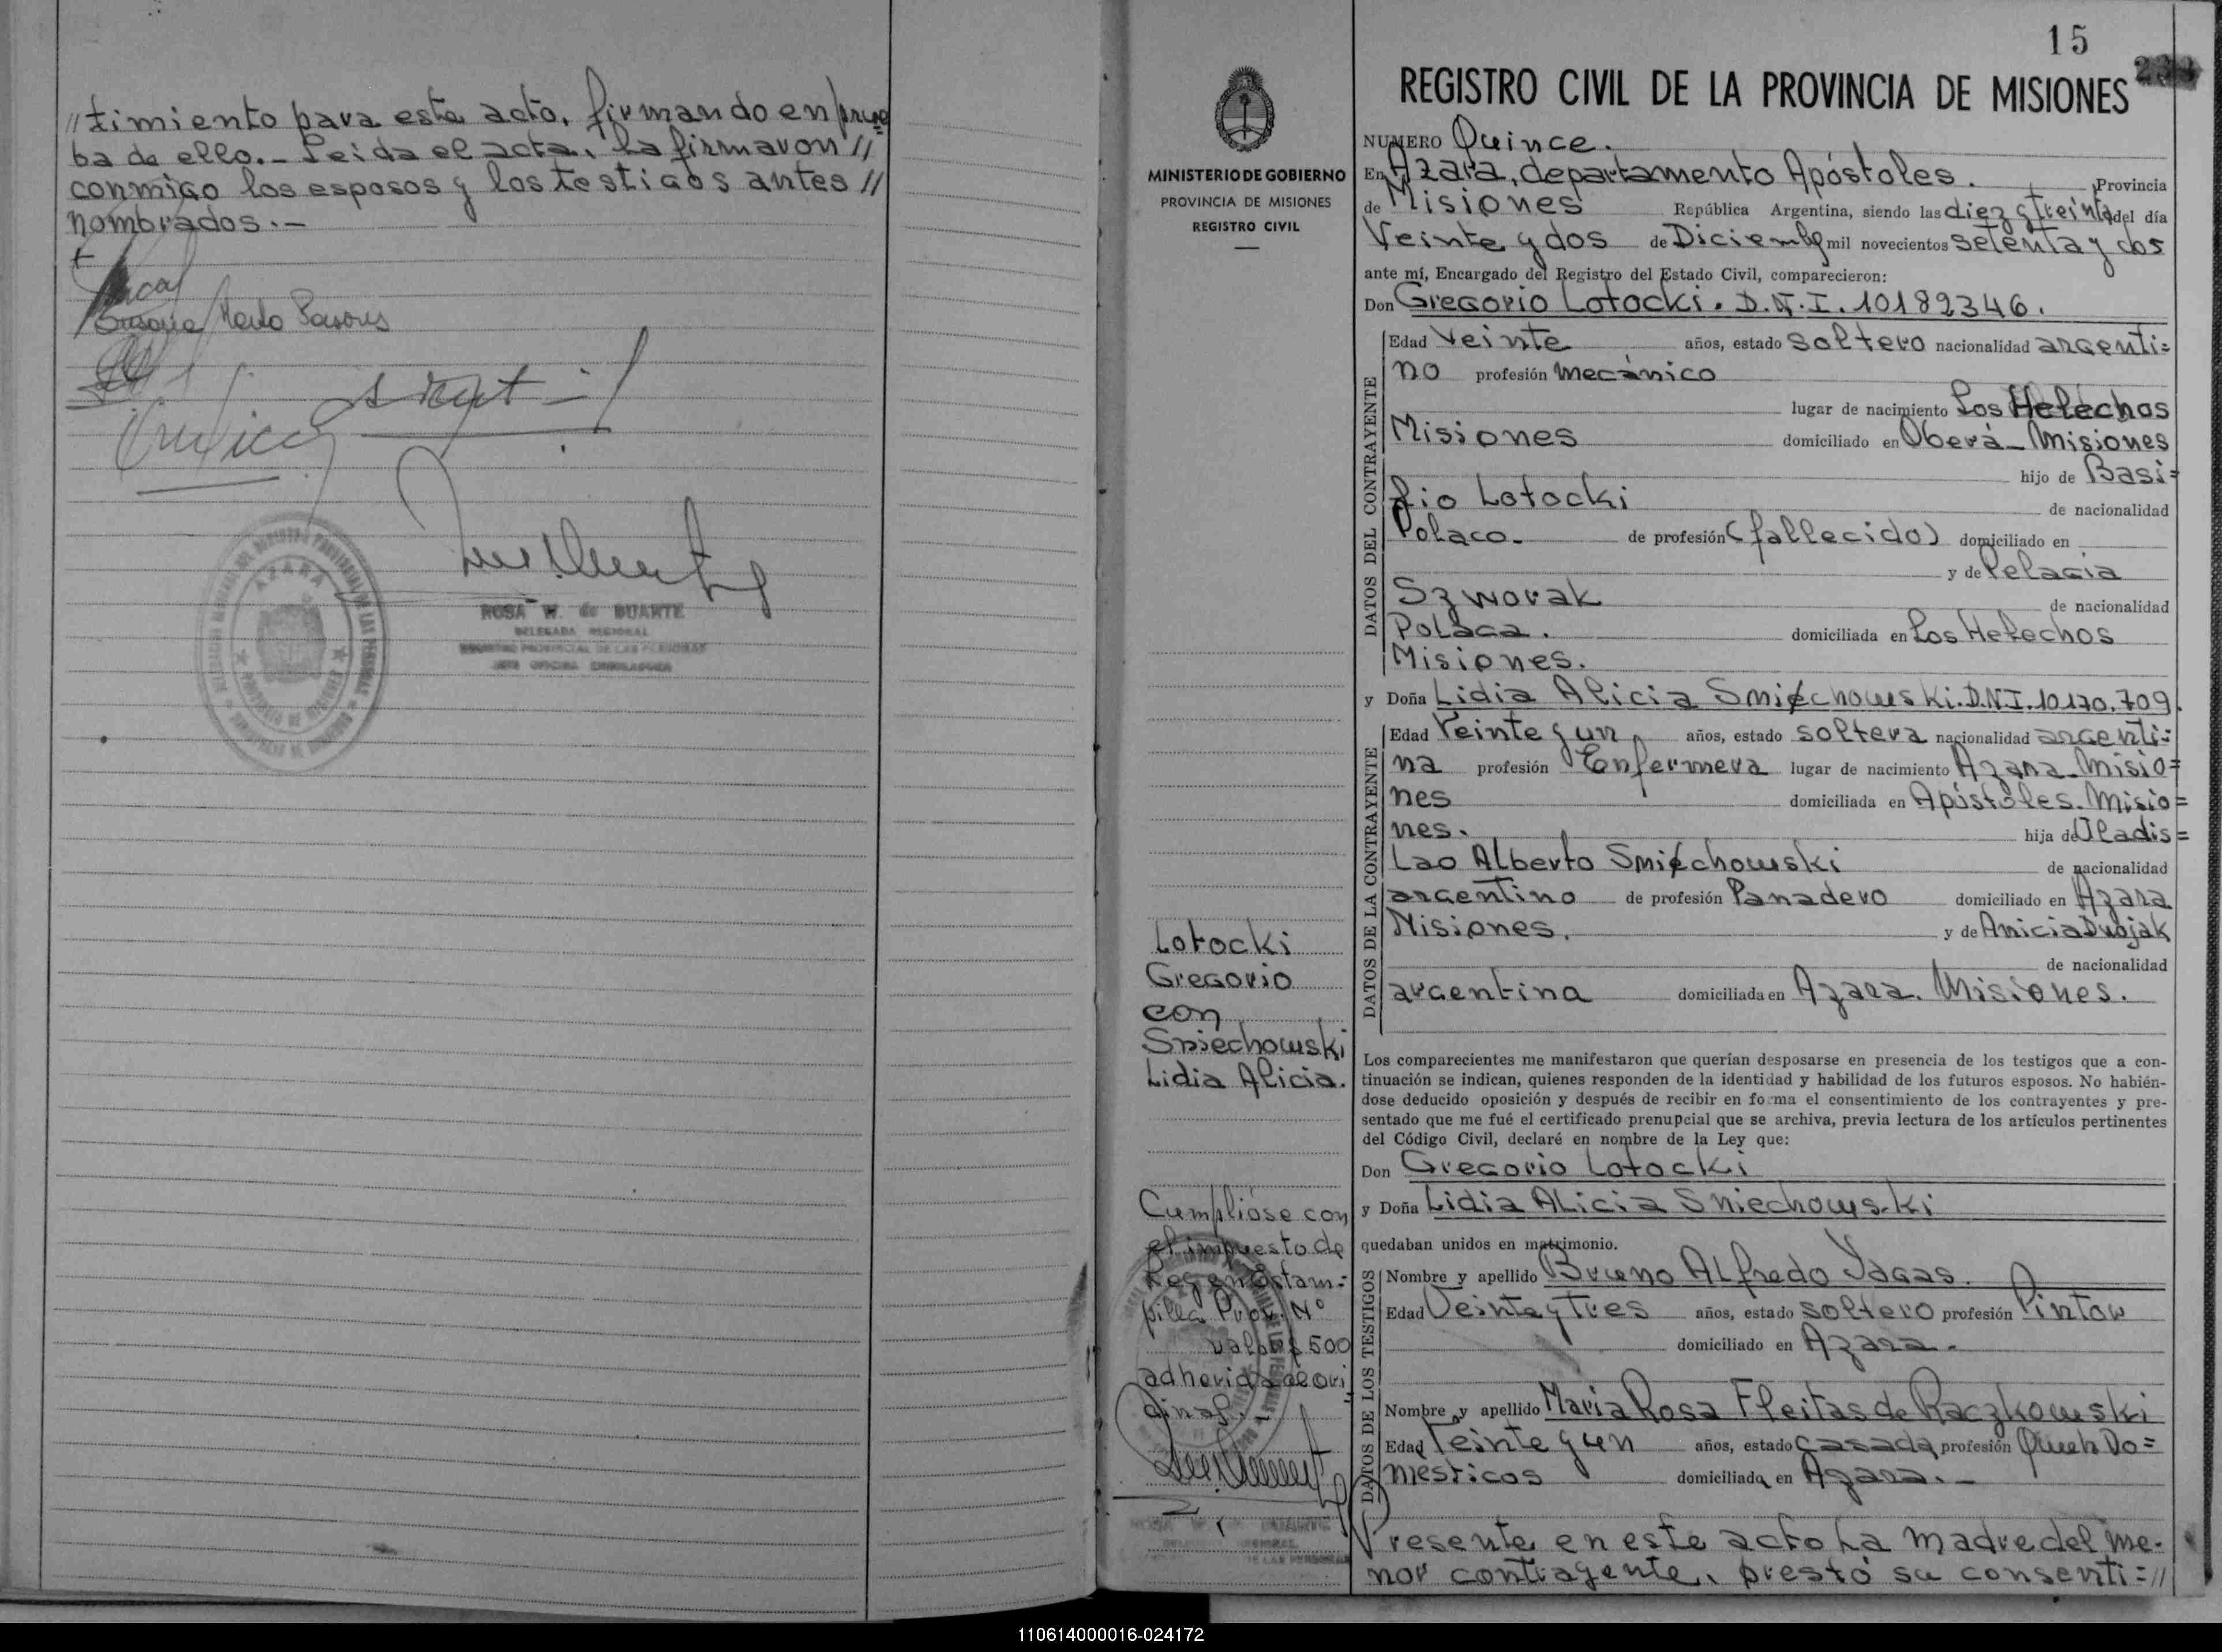 //timiento para este acto, firmando en prue
ba de ello.- Leida el acta, la firmaron //
conmigo los esposos y los testigos antes //
nombrados.-
AZARA
ROSA W. de DUARTE
DELEGADA REGIONAL
REGISTRO PROVINCIAL DE LAS PERSONAS
15
REGISTRO CIVIL DE LA PROVINCIA DE MISIONES
MINISTERIO DE GOBIERNO
PROVINCIA DE MISIONES
REGISTRO CIVIL
NUMERO Quince.
En Azara, departamento Apóstoles. Provincia
de Misiones República Argentina, siendo las diez y treinta del día
Veinte y dos de Diciembre mil novecientos setenta y dos
ante mí, Encargado del Registro del Estado Civil, comparecieron:
Don Gregorio Lotocki. D.N.I. 10182346.
DATOS DEL CONTRAYENTE
Edad Veinte años, estado soltero nacionalidad argenti=
no profesión mecánico
lugar de nacimiento Los Helechos
Misiones domiciliado en Oberá - Misiones
hijo de Basi=
lio Lotocki de nacionalidad
Polaco. de profesión (fallecido) domiciliado en
y de Pelagia
Szworak de nacionalidad
Polaca. domiciliada en Los Helechos
Misiones.
y Doña Lidia Alicia Smiechowski. D.N.I. 10170.709.
DATOS DE LA CONTRAYENTE
Edad Veinte y un años, estado soltera nacionalidad argenti=
na profesión Enfermera lugar de nacimiento Azara - Misio=
nes domiciliada en Apóstoles. Misio=
nes. hija de Uladis=
lao Alberto Smiechowski de nacionalidad
argentino de profesión Panadero domiciliado en Azara
Misiones. y de Anicia Dvojak
de nacionalidad
argentina domiciliada en Azara. Misiones.
Lotocki
Gregorio
con
Sniechowski
Lidia Alicia.
Los comparecientes me manifestaron que querían desposarse en presencia de los testigos que a con-
tinuación se indican, quienes responden de la identidad y habilidad de los futuros esposos. No habién-
dose deducido oposición y después de recibir en forma el consentimiento de los contrayentes y pre-
sentado que me fué el certificado prenupcial que se archiva, previa lectura de los artículos pertinentes
del Código Civil, declaré en nombre de la Ley que:
Don Gregorio Lotocki
y Doña Lidia Alicia Sniechowski
quedaban unidos en matrimonio.
Cumplióse con
el impuesto de
Ley en Estam=
pilla Prov. N°
valor $ 500
adherida al ori
ginal.-
DATOS DE LOS TESTIGOS
Nombre y apellido Bruno Alfredo Yagas.
Edad Veinte y Tres años, estado soltero profesión Pintor
domiciliado en Azara.
Nombre y apellido Maria Rosa Fleitas de Raczkowski
Edad Veinte y un años, estado casada, profesión Queh Do=
mésticos domiciliada en Azara.-
Presente en este acto la madre del me-
nor contrayente, prestó su consenti=//
110614000016-024172